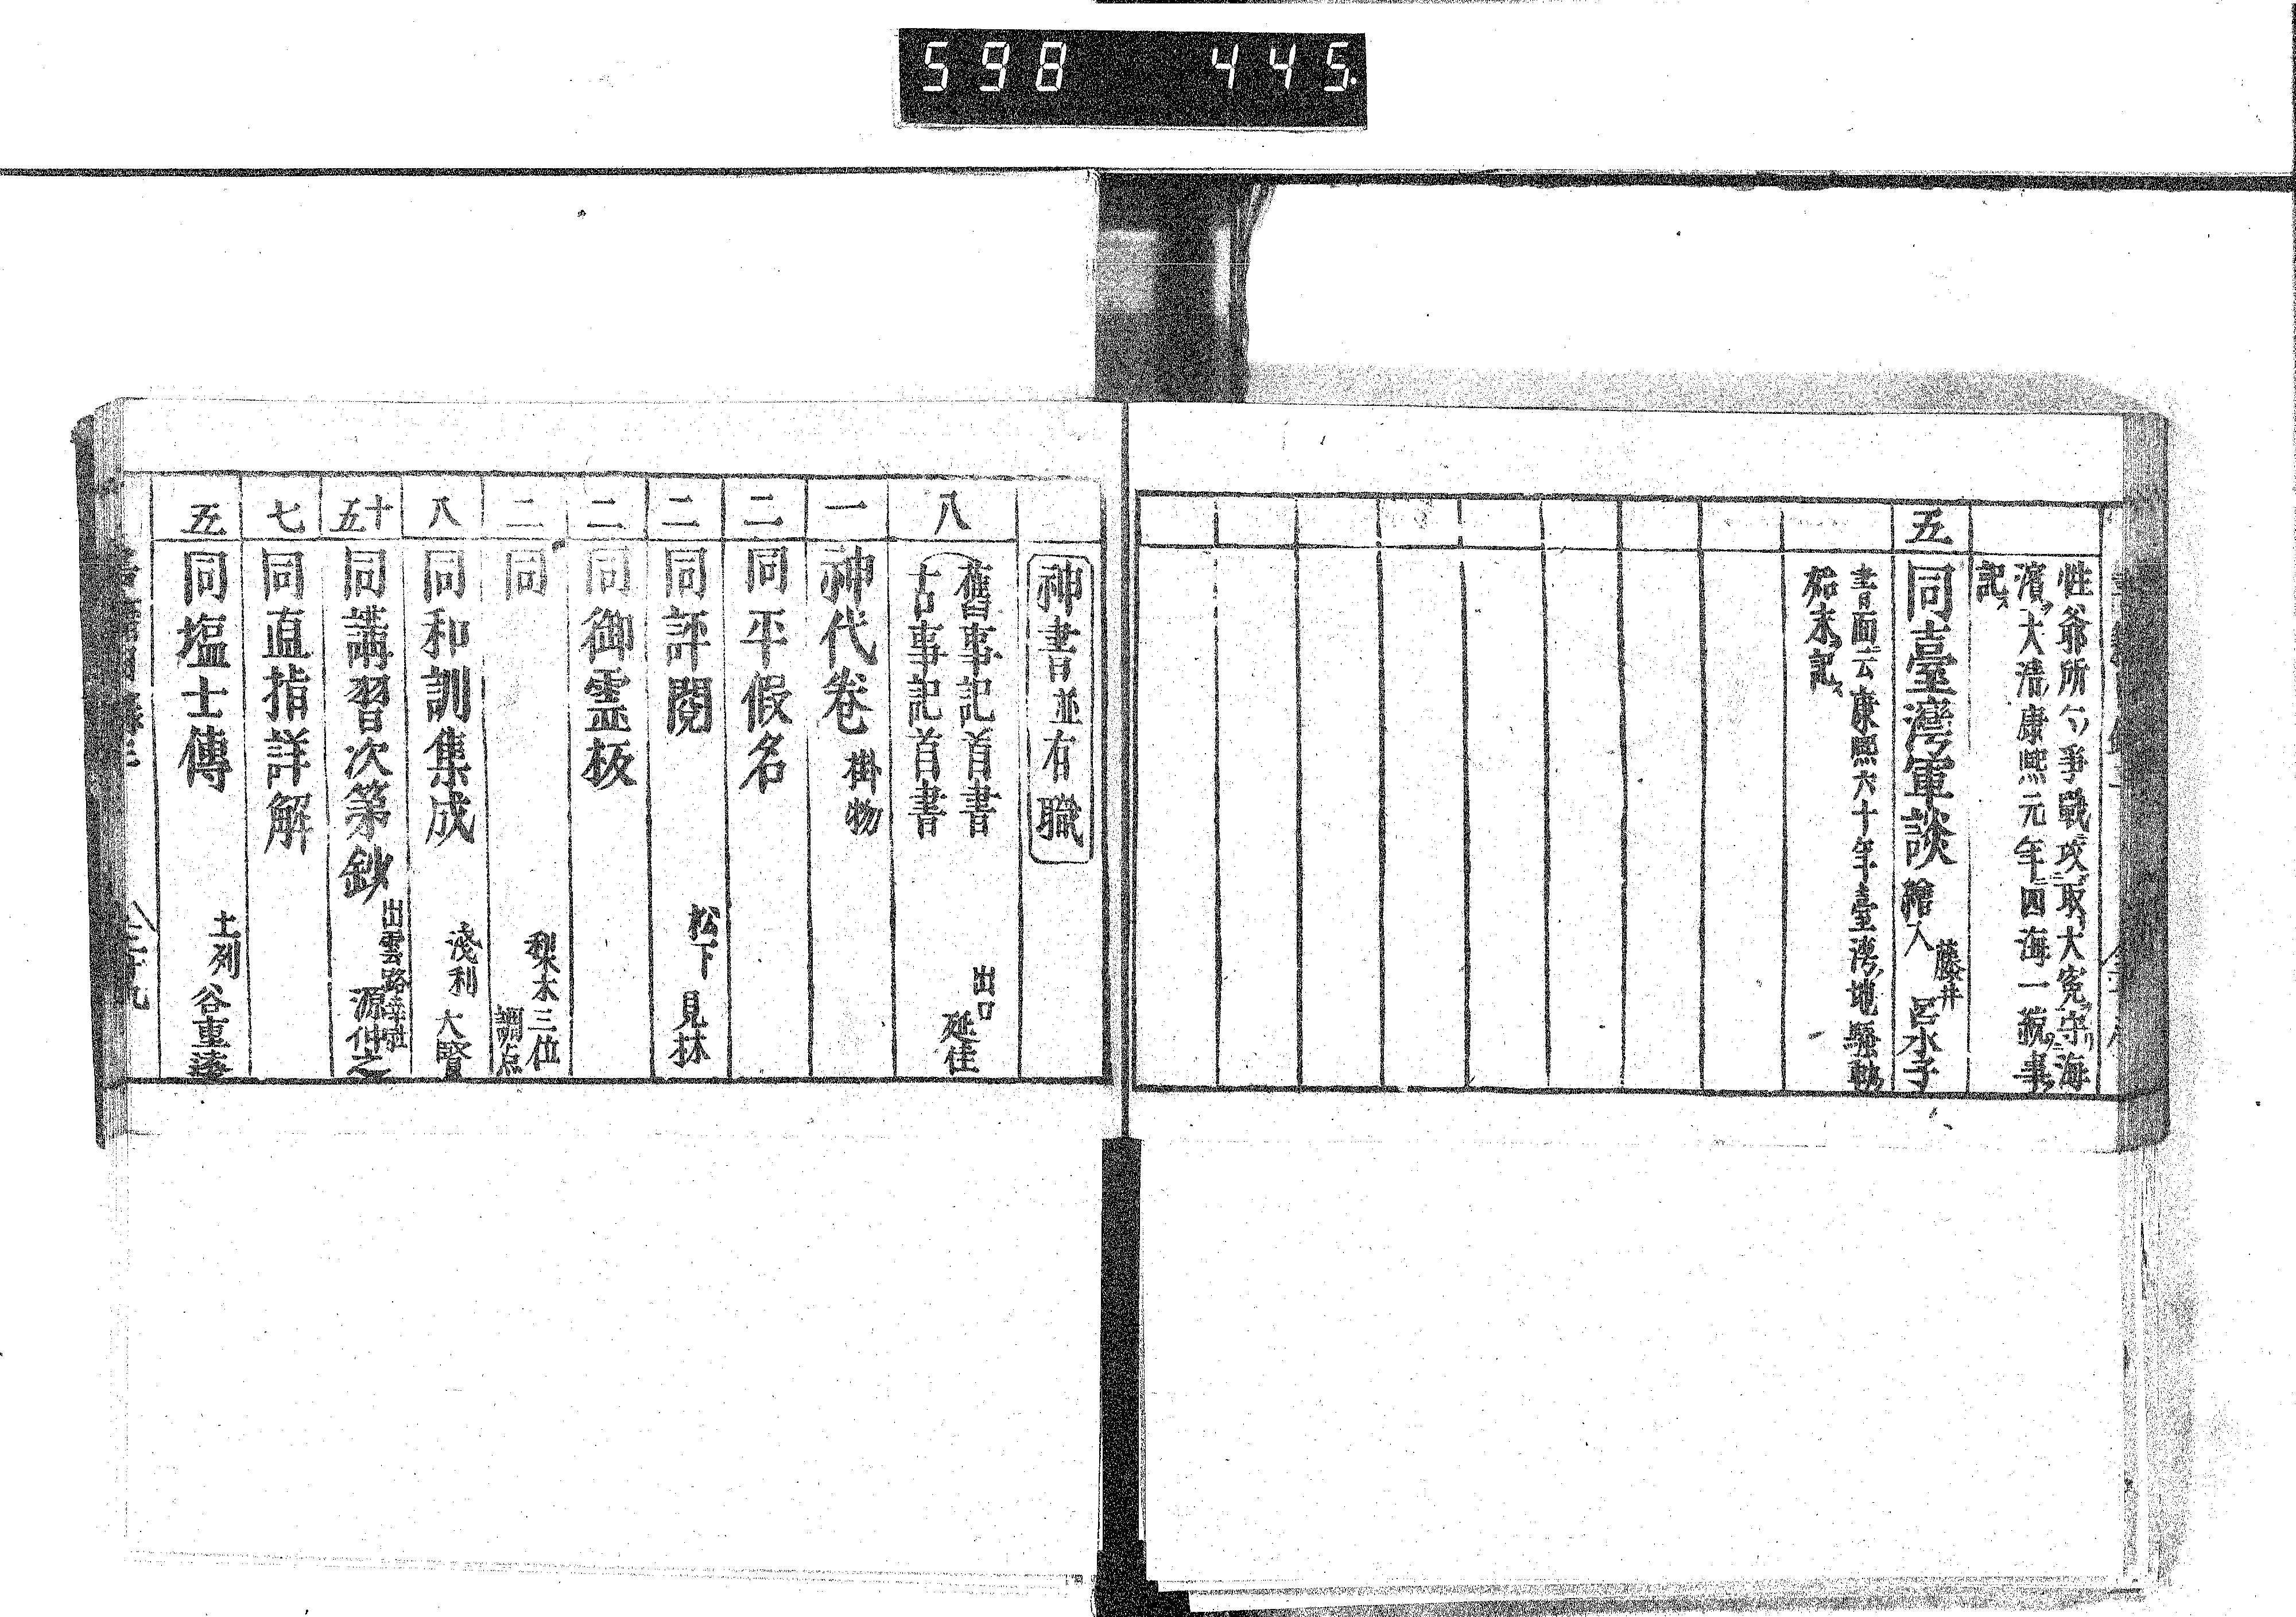 598 445
性爺所々爭戰攻取大寃守海
濱大清康熙元年四海一統事
記
五 同臺灣軍談 繪入 藤井 呂水子
書面云康熙六十年臺湾地騷動
始末記
神書並有職
八 舊事記首書
古事記首書 出口 延佳
一 神代卷 掛物
二 同平假名
二 同評閲 松下 見林
二 同御霊板
二 同 梨木三位 訓点
八 同和訓集成 淺利 大賢
十五 同講習次第鈔 出雲路 源仲之
七 同直指詳解
五 同塩士傳 土列 谷重遠